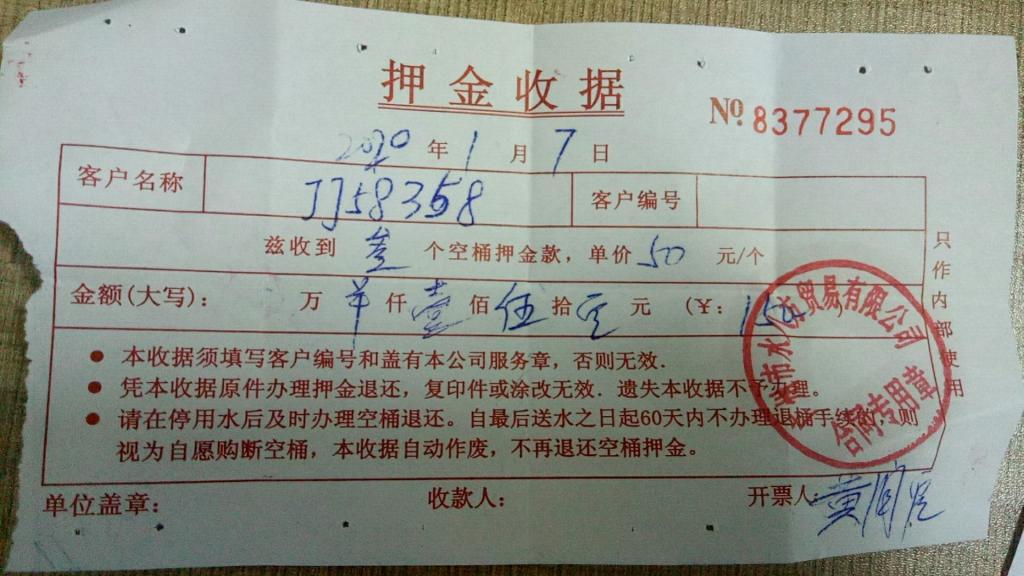 押金收据
№ 8377295
2020 年 1 月 7 日
客户名称 JJ58358 客户编号
兹收到 叁 个空桶押金款，单价 50 元/个
金额(大写)： 万 羊 仟 壹 佰 伍 拾 元 (¥： 150
● 本收据须填写客户编号和盖有本公司服务章，否则无效．
● 凭本收据原件办理押金退还，复印件或涂改无效．遗失本收据不予办理。
● 请在停用水后及时办理空桶退还。自最后送水之日起60天内不办理退桶手续的，则
视为自愿购断空桶，本收据自动作废，不再退还空桶押金。
单位盖章： 收款人： 开票人： 黄
只作内部使用
贸易有限公司
合同专用章